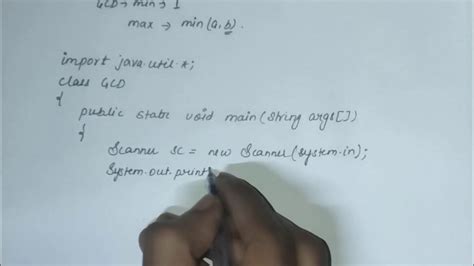 GCD → min → 1
max → min(a,b).
import java.util.*;
class GCD
{
public static void main(String args[])
{
Scanner sc = new Scanner(System.in);
System.out.print